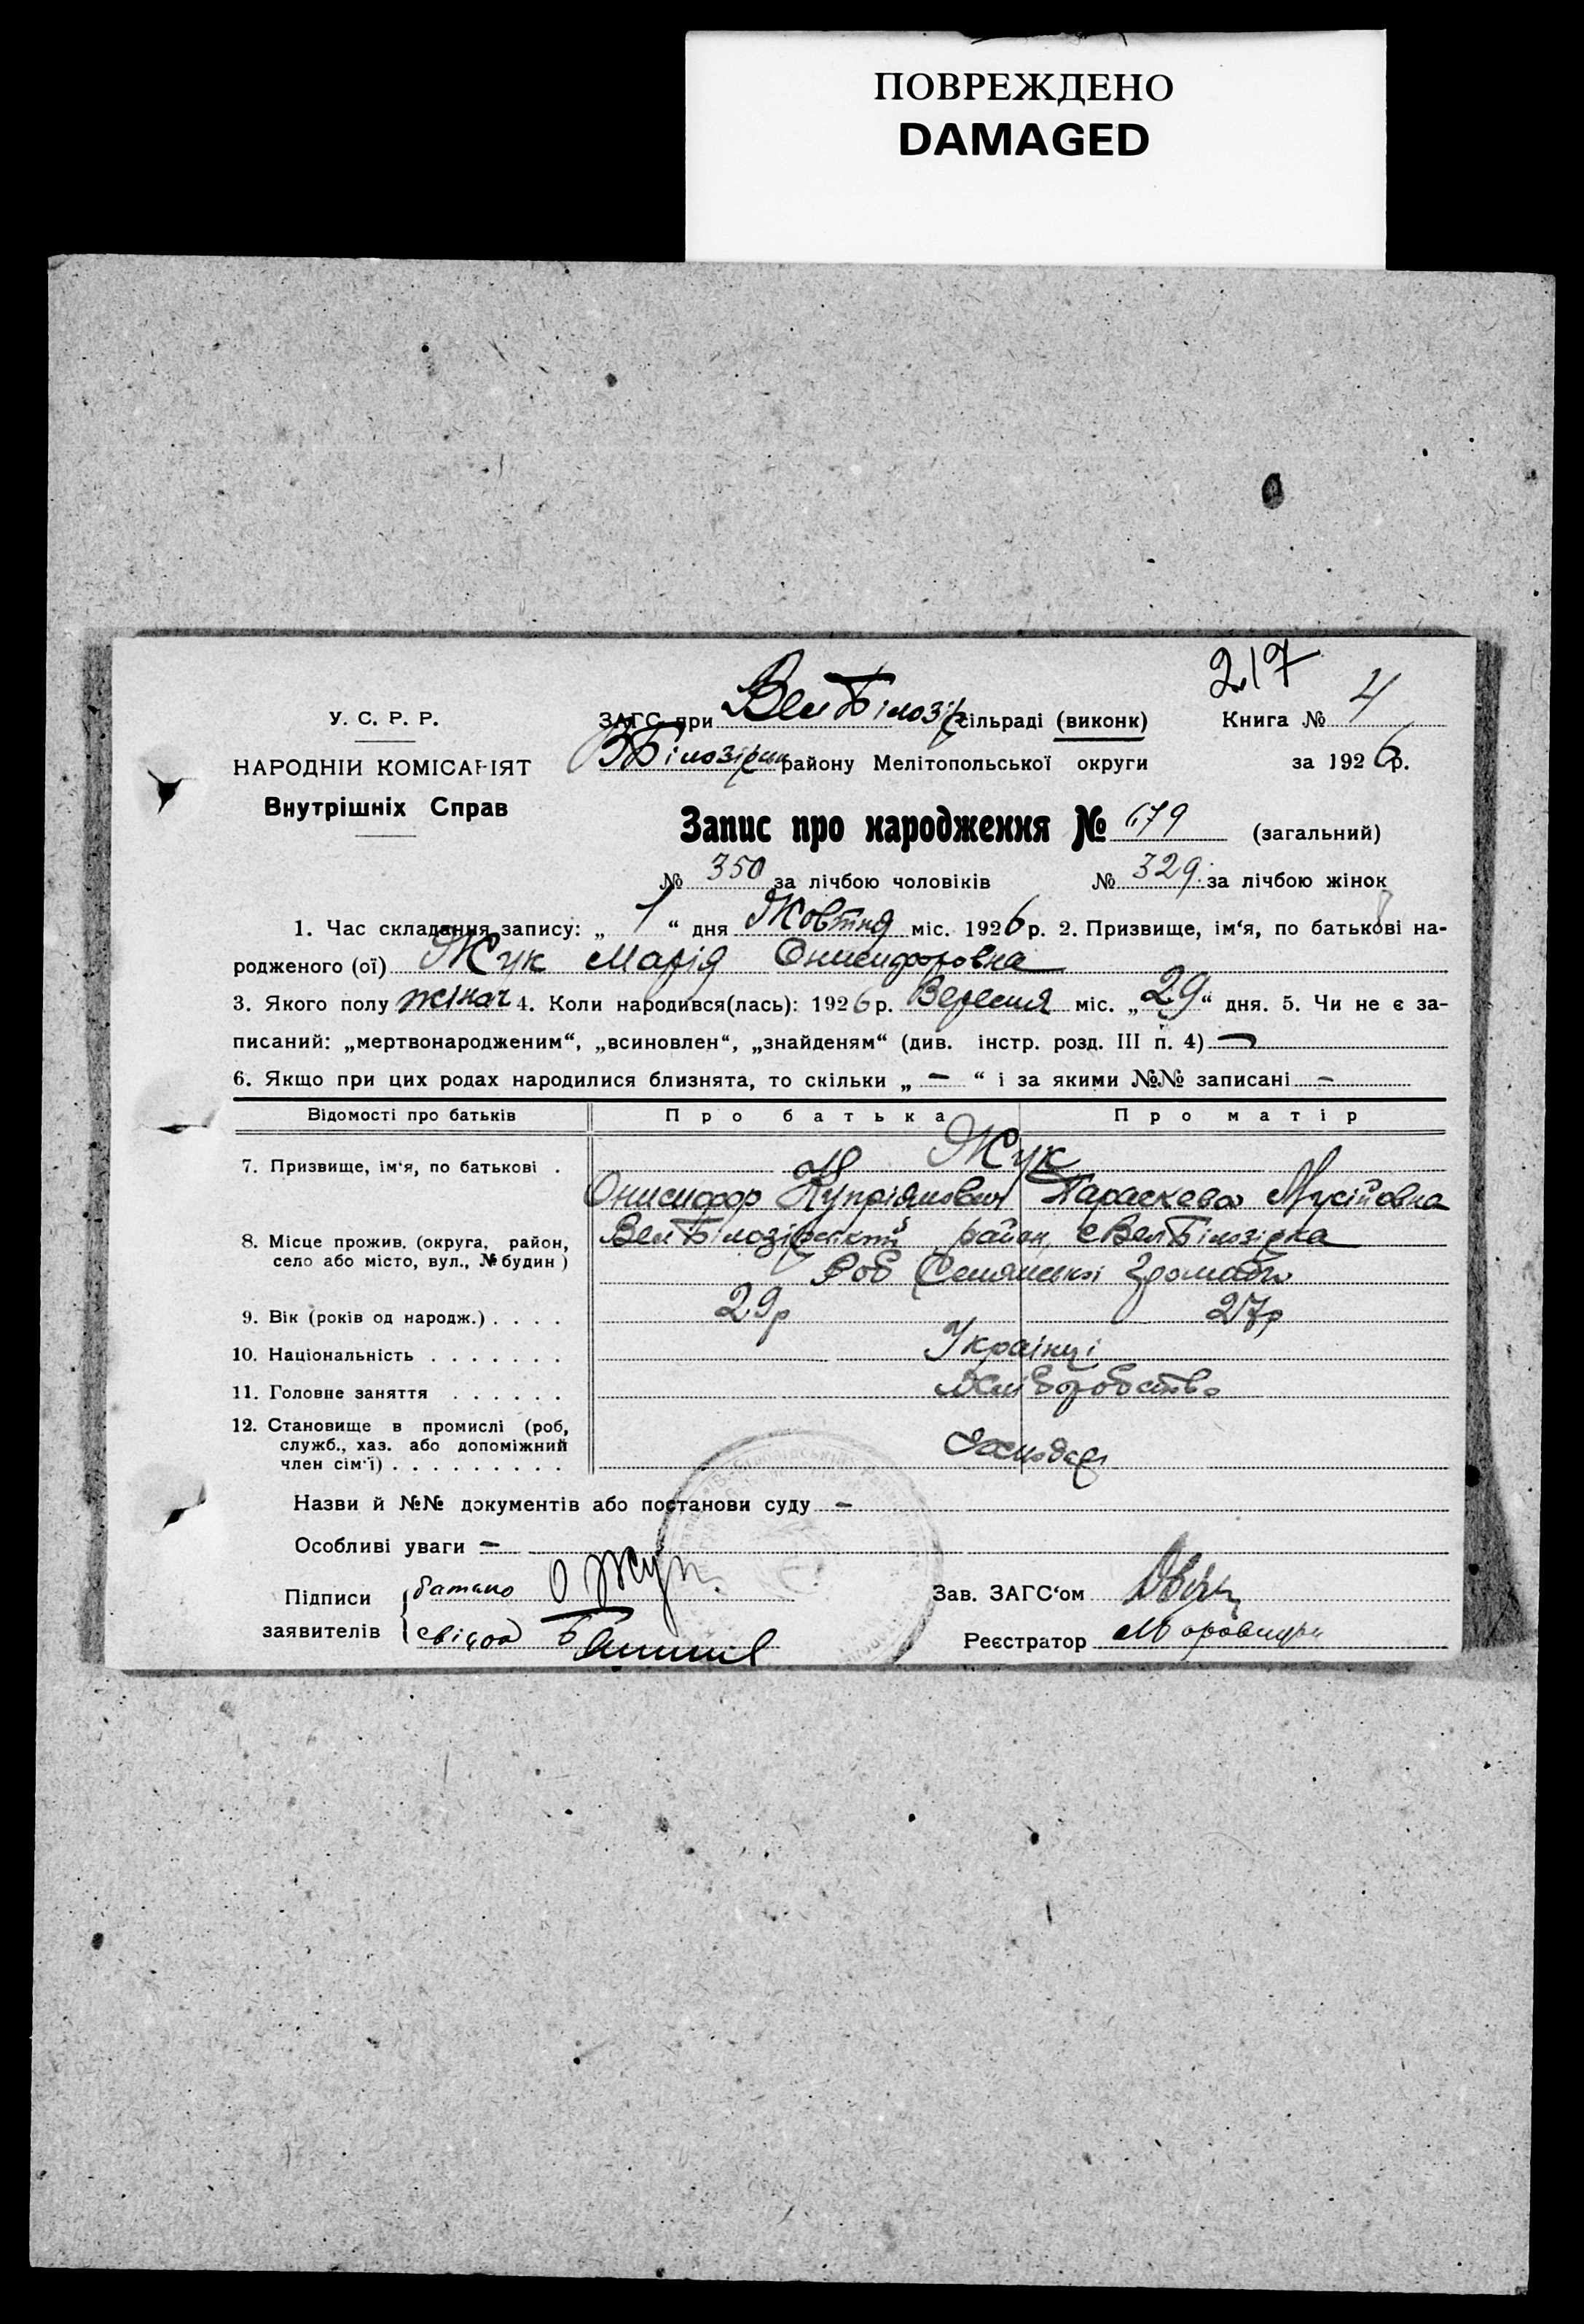 ПОВРЕЖДЕНО
DAMAGED
217
У. С. Р. Р.
НАРОДНІЙ КОМІСАРІЯТ
Внутрішніх Справ
ЗАГС при Вел Білозір сільраді (виконк)
Книга № 4
ВБілозірки району Мелітопольської округи
за 1926 р.
Запис про народження № 679 (загальний)
№ 350 за лічбою чоловіків № 329 за лічбою жінок
1. Час складання запису: „ 1 “ дня Жовтня міс. 1926 р. 2. Призвище, ім‘я, по батькові на-
родженого (ої) Жук Марія Онисифоровна
3. Якого полу жіноч 4. Коли народився(лась): 1926 р. Вересня міс. „ 29 “ дня. 5. Чи не є за-
писаний: „мертвонародженим“, „всиновлен“, „знайденям“ (див. інстр. розд. III п. 4) —
6. Якщо при цих родах народилися близнята, то скільки „ — “ і за якими №№ записані —
Відомості про батьків Про батька Про матір
7. Призвище, ім‘я, по батькові . Жук
Онисифор Купріянович Параскева Мусійовна
8. Місце прожив. (округа, район,
село або місто, вул., № будин)
Вел Білозірський район, с Вел Білозірка
Роб Селянської громади
9. Вік (років од народж.) . . . . 29р 27р
10. Національність . . . . . . . Українці
11. Головне заняття . . . . . . хліборобство
12. Становище в промислі (роб,
служб., хаз. або допоміжний
член сім‘ї) . . . . . . . . . Господар
Назви й №№ документів або постанови суду —
Особливі уваги —
Підписи
заявителів
батько О Жук
свідок
Зав. ЗАГС‘ом
Реєстратор